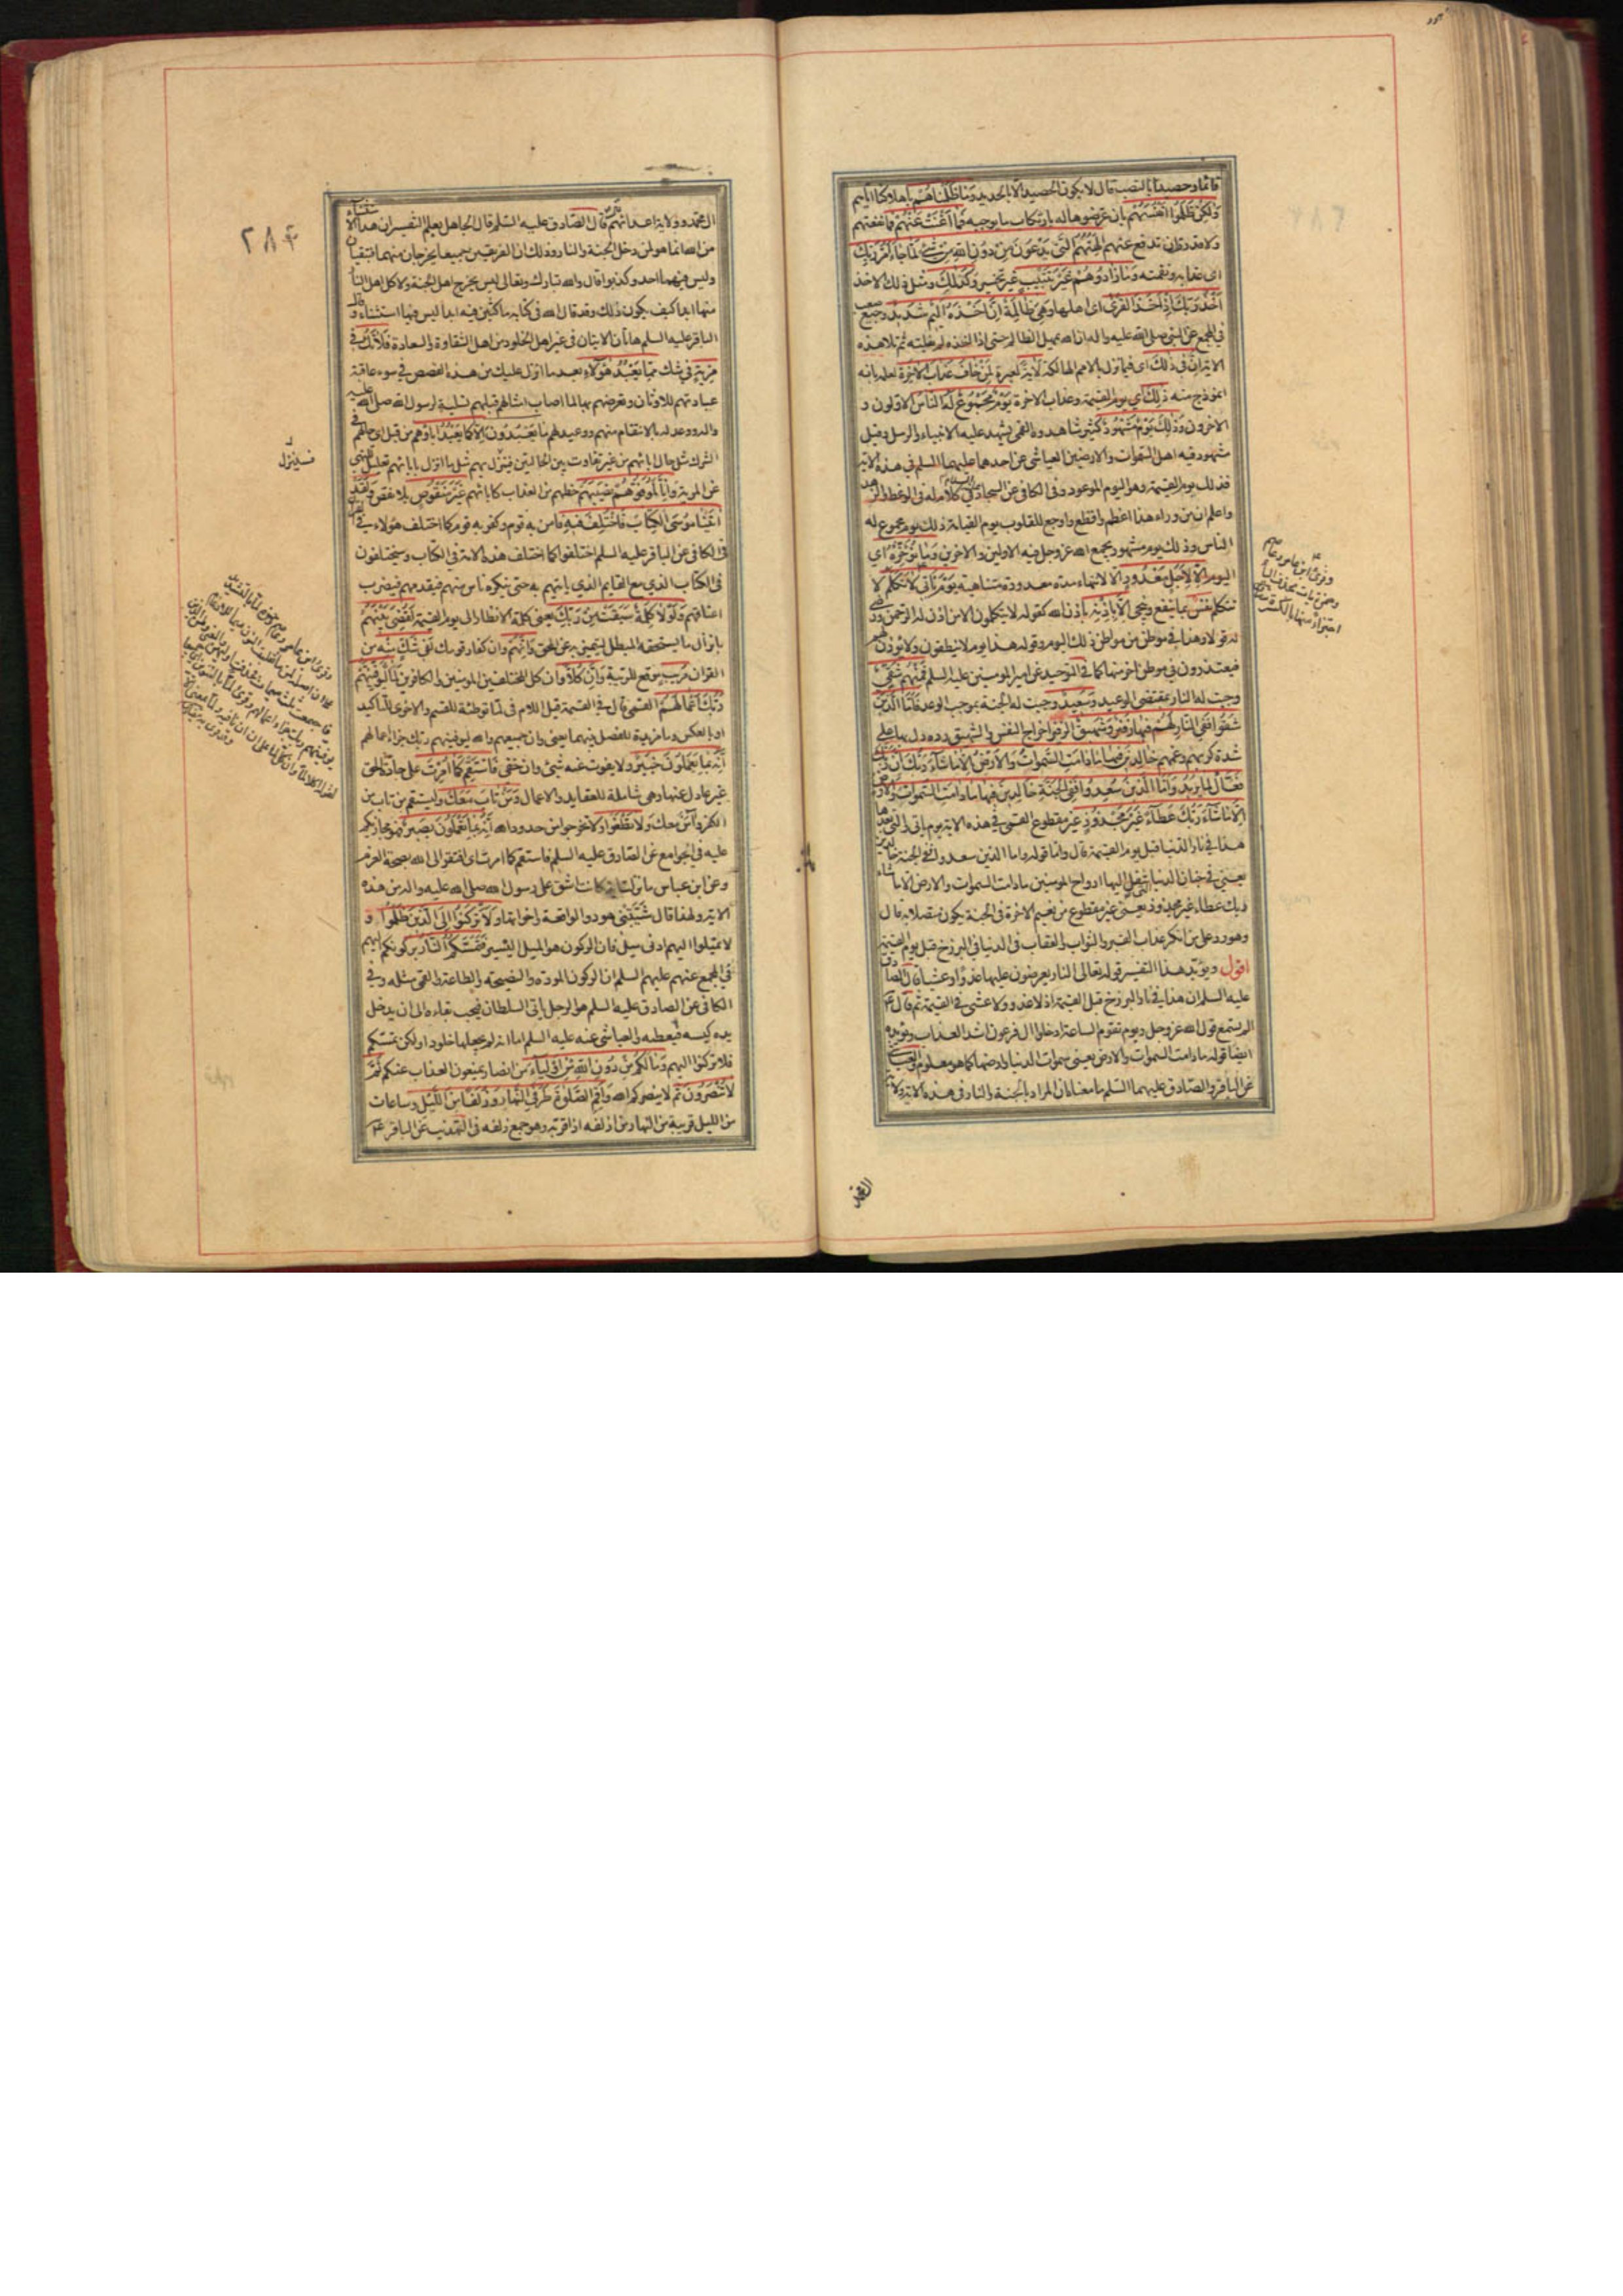 قائما وحصيدا بالنصب قال لا يكون الحصيد الا بالحديد وما ظلمناهم باهلاكنا اياهم
ولكن ظلموا انفسهم بان عرضوها له بارتكاب ما يوجبه فما اغنت عنهم فما نفعتهم
ولا قدرت ان تدفع عنهم الهتهم التي يدعون من دون الله من شيء لما جاء امر ربك
اي عذابه ونقمته وما زادوهم غير تتبيب غير تخسير وكذلك ومثل ذلك الاخذ
اخذ ربك اذا اخذ القرى اي اهلها وهي ظالمة ان اخذه اليم شديد وجيع صعب
في المجمع عن النبي صلى الله عليه واله ان الله يمهل الظالم حتى اذا اخذه لم يفلته ثم تلا هذه
الاية ان في ذلك اي فيما نزل بالامم الهالكة لاية لعبرة لمن خاف عذاب الاخرة لعلمه بانه
انموذج منه ذلك اي يوم القيمة وعذاب الاخرة يوم مجموع له الناس الاولون و
الاخرون وذلك يوم مشهود كثير شاهدوه القمي يشهد عليه الانبياء والرسل وقيل
مشهود فيه اهل السموات والارضين العياشي عن احدهما عليهما السلم في هذه الاية
فذلك يوم القيمة وهو اليوم الموعود وفي الكافي عن السجاد عليه السلام في كلام له في الوعظ والزهد
واعلم ان من وراء هذا اعظم وافظع واوجع للقلوب يوم القيامة ذلك يوم مجموع له
الناس وذلك يوم مشهود يجمع الله عز وجل فيه الاولين والاخرين وما نؤخره اي
اليوم الا لاجل معدود الا لانتهاء مدة معدودة متناهية يوم يأتي لا تكلم لا
تتكلم نفس بما ينفع وينجي الا باذنه باذن الله كقوله لا يتكلمون الا من اذن له الرحمن ورضي
له قولا وهذا في موطن من مواطن ذلك اليوم وقوله هذا يوم لا ينطقون ولا يؤذن لهم
فيعتذرون في موطن اخر منها كما في التوحيد عن امير المومنين عليه السلم فمنهم شقي
وجبت له النار بمقتضى الوعيد وسعيد وجبت له الجنة بموجب الوعد فاما الذين
شقوا ففي النار لهم فيها زفير وشهيق الزفير اخراج النفس والشهيق رده دل بهما على
شدة كربهم وغمهم خالدين فيها ما دامت السموات والارض الا ما شاء ربك ان ربك
فعال لما يريد واما الذين سعدوا ففي الجنة خالدين فيها ما دامت السموات والارض
الا ما شاء ربك عطاء غير مجذوذ غير مقطوع القمي في هذه الاية يوم يأتي والتي بعدها
هذا في نار الدنيا قبل يوم القيمة قال واما قوله واما الذين سعدوا ففي الجنة خالدين
يعني في جنان الدنيا التي تنقل اليها ارواح المومنين ما دامت السموات والارض الا ما شاء
ربك عطاء غير مجذوذ يعني غير مقطوع من نعيم الاخرة في الجنة يكون متصلا به قال
وهو رد على من انكر عذاب القبر والثواب والعقاب في الدنيا في البرزخ قبل يوم القيمة
اقول ويؤيد هذا التفسير قوله تعالى النار يعرضون عليها غدوا وعشيا قال الصادق
عليه السلم ان هذا في نار البرزخ قبل القيمة اذ لا غدو ولا عشي في القيمة ثم قال ع
الم يستمع قول الله عز وجل ويوم تقوم الساعة ادخلوا ال فرعون اشد العذاب ويؤيده
ايضا قوله ما دامت السموات والارض يعني سموات الدنيا وارضها كما هو معلوم والعياشي
عن الباقر والصادق عليهما السلم ما معناه ان المراد بالجنة والنار في هذه الاية ولاية
وقرئ ابن عامر وعاصم
وحمزة يأت بحذف الياء
اجتزاء عنها بالكسرة
ال محمد
٢٨٤
ال محمد وولاية اعدائهم ثم قال الصادق عليه السلم قال الجاهل بعلم التفسير ان هذا الاستثناء
من الله انما هو لمن دخل الجنة والنار وذلك ان الفريقين جميعا يخرجان منهما فتبقيان
وليس فيهما احد وكذبوا قال والله تبارك وتعالى ليس يخرج اهل الجنة ولا كل اهل النار
منها ابدا كيف يكون ذلك وقد قال الله في كتابه ماكثين فيه ابدا ليس فيها استثناء وقال
الباقر عليه السلم هاتان الايتان في غير اهل الخلود من اهل الشقاوة والسعادة فلا تك في
مرية في شك مما يعبد هؤلاء بعد ما انزل عليك من هذه القصص في سوء عاقبة
عبادتهم للاوثان وتعرضهم بها لما اصاب امثالهم قبلهم تسلية لرسول الله صلى الله عليه
واله ووعد له بالانتقام منهم ووعيد لهم ما يعبدون الا كما يعبد اباؤهم من قبل اي حالهم في
الشرك مثل حال ابائهم من غير تفاوت بين الحالتين فينزل بهم مثل ما انزل بابائهم تعليل للنهي
عن المرية وانا لموفوهم نصيبهم حظهم من العذاب كابائهم غير منقوص بلا نقص ولقد
اتينا موسى الكتاب فاختلف فيه فامن به قوم وكفر به قوم كما اختلف هؤلاء في القران
في الكافي عن الباقر عليه السلم اختلفوا كما اختلف هذه الامة في الكتاب وسيختلفون
في الكتاب الذي مع القايم الذي ياتيهم به حتى ينكره ناس منهم فيقدمهم فيضرب
اعناقهم ولولا كلمة سبقت من ربك يعني كلمة الانظار الى يوم القيمة لقضي بينهم
بانزال ما يستحقه المبطل ليتميز به عن المحق وانهم وان كفار قومك لفي شك منه من
القران مريب موقع للريبة وان كلا وان كل المختلفين المومنين والكافرين لما ليوفينهم
ربك اعمالهم القمي قال في القيمة قيل اللام في لما توطئة للقسم والاخرى للتاكيد
او بالعكس وما مزيدة للفصل بينهما يعني وان جميعهم والله ليوفينهم ربك جزاء اعمالهم
انه بما يعملون خبير ولا يفوت عنه شيء وان خفي فاستقم كما امرت على جادة الحق
غير عادل عنها وهي شاملة للعقايد والاعمال ومن تاب معك وليستقم من تاب من
الكفر وآمن معك ولا تطغوا ولا تخرجوا من حدود الله انه بما تعملون بصير فهو مجازيكم
عليه في الجوامع عن الصادق عليه السلم فاستقم كما امرت اي افتقر الى الله بصحة العزم
وعن ابن عباس ما نزلت اية كانت اشق على رسول الله صلى الله عليه واله من هذه
الاية ولهذا قال شيبتني هود والواقعة واخواتها ولا تركنوا الى الذين ظلموا و
لا تميلوا اليهم ادنى ميل فان الركون هو الميل اليسير فتمسكم النار بركونكم اليهم
في المجمع عنهم عليهم السلم ان الركون المودة والنصيحة والطاعة والقمي مثله وفي
الكافي عن الصادق عليه السلم هو الرجل ياتي السلطان فيحب بقاءه الى ان يدخل
يده كيسه فيعطيه والعياشي عنه عليه السلم اما انه لم يجعلها خلودا ولكن تمسكم
فلا تركنوا اليهم وما لكم من دون الله من اولياء من انصار يمنعون العذاب عنكم ثم
لا تنصرون ثم لا ينصركم الله واقم الصلوة طرفي النهار وزلفا من الليل وساعات
من الليل قريبة من النهار من ازلفه اذا قربه وهو جمع زلفة في التهذيب عن الباقر ع
فسينزل